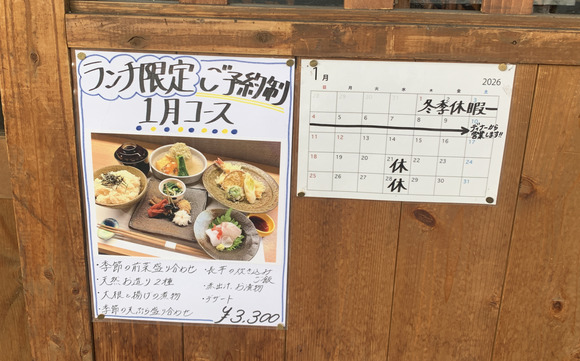 ランチ限定 ご予約制
1月コース
・季節の前菜盛り合わせ
・天然お造り2種
・大根と揚げの煮物
・季節の天ぷら盛り合わせ
・長芋の炊き込みご飯
・赤出汁、お漬物
・デザート
¥3,300
1月
2026
日 月 火 水 木 金 土
冬季休暇
4 5 6 7 8 9 10
ディナーから
営業します!!
11 12 13 14 15 16 17
18 19 20 21 22 23 24
休
25 26 27 28 29 30 31
休